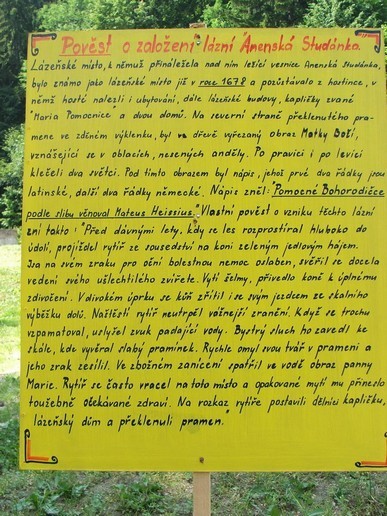 Pověst o založení lázní "Anenská Studánka.
Lázeňské místo, k němuž přináležela nad ním ležící vesnice Anenská Studánka,
bylo známo jako lázeňské místo již v roce 1678 a pozůstávalo z hostince, v
němž hosté nalezli i ubytování, dále lázeňské budovy, kapličky zvané
"Maria Pomocnice a dvou domů. Na severní straně překlenutého pra-
mene ve zděném výklenku, byl ve dřevě vyřezaný obraz Matky Boží,
vznášející se v oblacích, nesených anděly. Po pravici i po levici
klečeli dva světci. Pod tímto obrazem byl nápis, jehož prvé dva řádky jsou
latinské, další dva řádky německé. Nápis zněl: "Pomocné Bohorodičce
podle slibu věnoval Mateus Heissius." Vlastní pověst o vzniku těchto lázní
zní takto: "Před dávnými lety, kdy se les rozprostíral hluboko do
údolí, projížděl rytíř ze sousedství na koni zeleným jedlovým hájem.
Jsa na svém zraku pro oční bolestnou nemoc oslaben, svěřil se docela
vedení svého ušlechtilého zvířete. Vytí šelmy, přivedlo koně k úplnému
zdivočení. V divokém úprku se kůň zřítil i se svým jezdcem ze skalního
výběžku dolů. Naštěstí rytíř neutrpěl vážnější zranění. Když se trochu
vzpamatoval, uslyšel zvuk padající vody. Bystrý sluch ho zavedl ke
skále, kde vyvěral slabý pramínek. Rychle omyl svou tvář v prameni a
jeho zrak zesílil. Ve zbožném zanícení spatřil ve vodě obraz panny
Marie. Rytíř se často vracel na toto místo a opakované mytí mu přineslo
toužebně očekávané zdraví. Na rozkaz rytíře postavili dělníci kapličku,
lázeňský dům a překlenuli pramen."